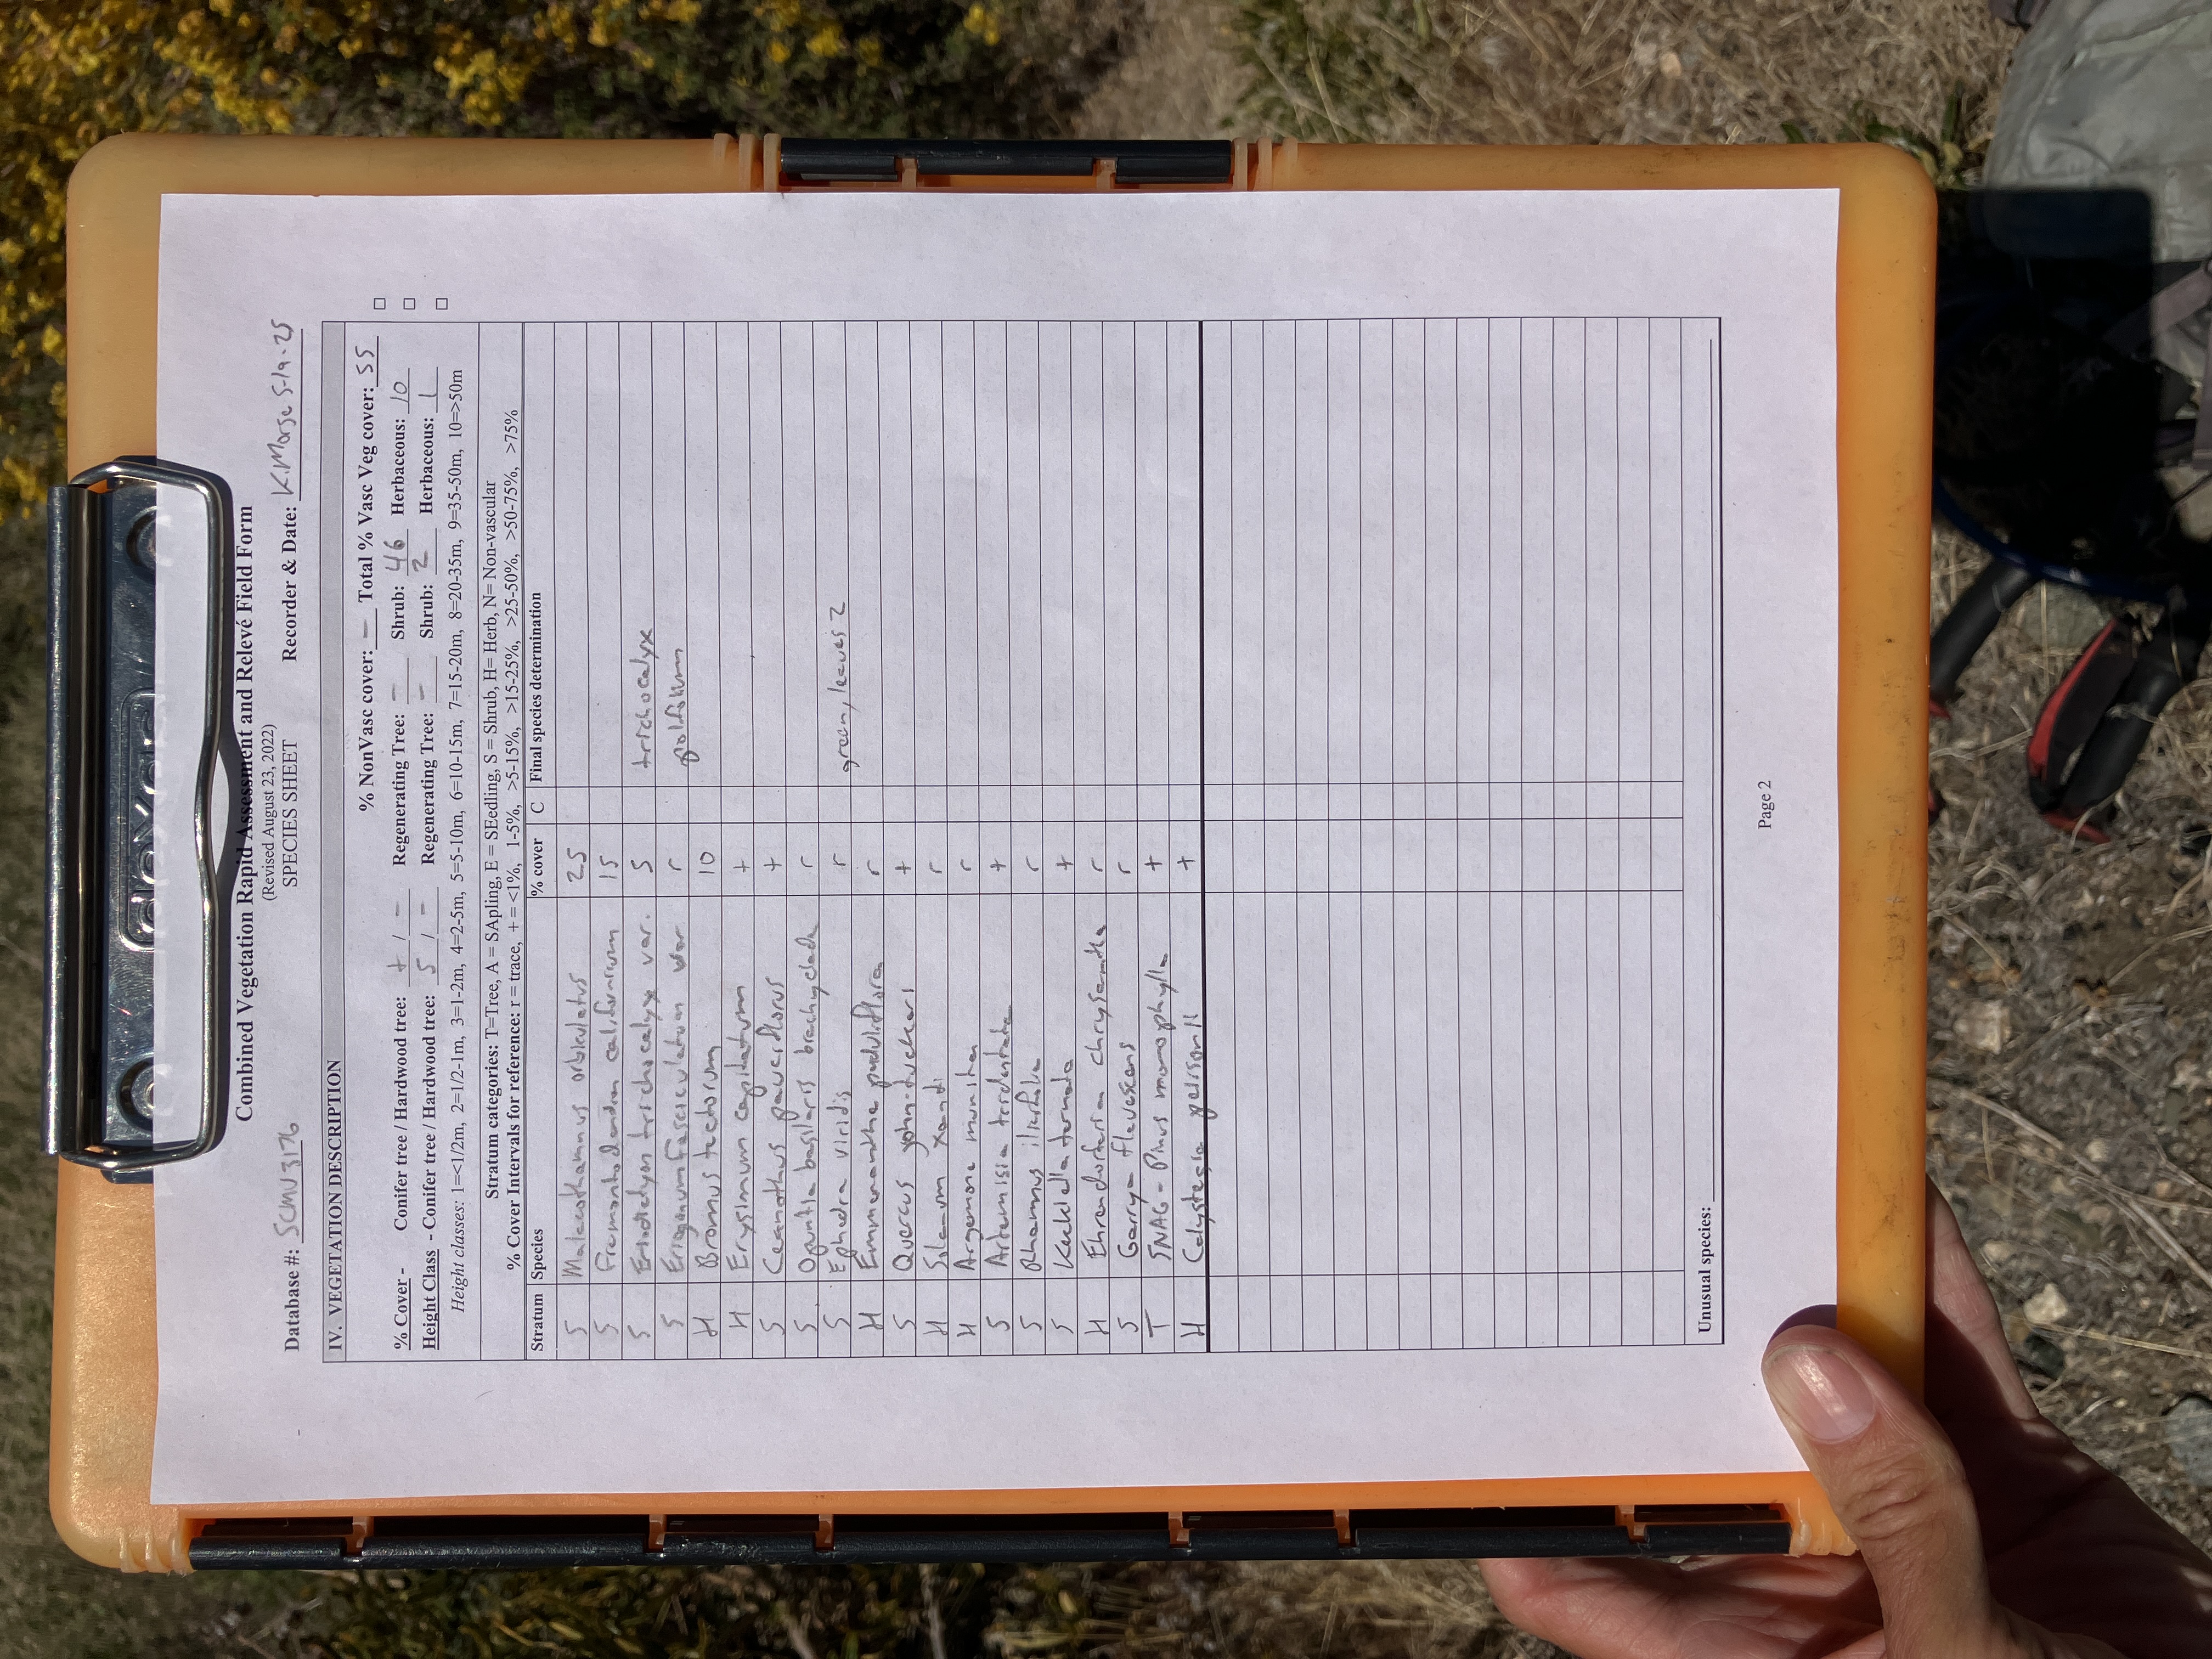 Combined Vegetation Rapid Assessment and Relevé Field Form
(Revised August 23, 2022)
SPECIES SHEET
Database #: SCMU3176 Recorder & Date: K.Morse 5-19-25
IV. VEGETATION DESCRIPTION
% NonVasc cover: — Total % Vasc Veg cover: 55
% Cover - Conifer tree / Hardwood tree: + / — Regenerating Tree: — Shrub: 46 Herbaceous: 10
Height Class - Conifer tree / Hardwood tree: 5 / — Regenerating Tree: — Shrub: 2 Herbaceous: 1
Height classes: 1=<1/2m, 2=1/2-1m, 3=1-2m, 4=2-5m, 5=5-10m, 6=10-15m, 7=15-20m, 8=20-35m, 9=35-50m, 10=>50m
Stratum categories: T=Tree, A = SApling, E = SEedling, S = Shrub, H= Herb, N= Non-vascular
% Cover Intervals for reference: r = trace, + = <1%, 1-5%, >5-15%, >15-25%, >25-50%, >50-75%, >75%
Stratum Species % cover C Final species determination
S Malacothamnus orbiculatus 25
S Fremontodendron californicum 15
S Eriodictyon trichocalyx var. 5 trichocalyx
S Eriogonum fasciculatum var r polifolium
H Bromus tectorum 10
H Erysimum capitatum +
S Ceanothus pauciflorus +
S Opuntia basilaris brachyclada r
S Ephedra viridis r green, leaves 2
H Emmenanthe penduliflora r
S Quercus john-tuckeri +
H Solanum xanti r
H Argemone munita r
S Artemisia tridentata +
S Rhamnus ilicifolia r
S Keckiella ternata +
H Ehrendorferia chrysantha r
S Garrya flavescens r
T SNAG - Pinus monophylla +
H Calystegia peirsonii +
Unusual species:
Page 2